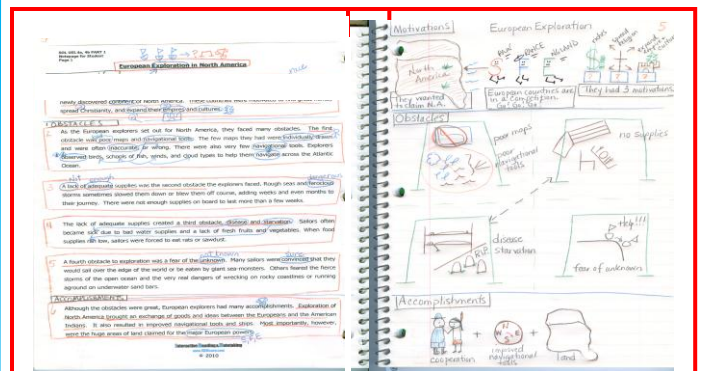 European Exploration in North America
newly discovered continent of North America. These countries were motivated to find great riches,
spread Christianity, and expand their empires and cultures.
OBSTACLES
As the European explorers set out for North America, they faced many obstacles. The first
obstacle was poor maps and navigational tools. The few maps they had were individually drawn
and were often inaccurate or wrong. There also were very few navigational tools. Explorers
observed birds, schools of fish, winds, and cloud types to help them navigate across the Atlantic
Ocean.
not enough
3 A lack of adequate supplies was the second obstacle the explorers faced. Rough seas and ferocious
storms sometimes slowed them down or blew them off course, adding weeks and even months to
their journey. There were not enough supplies on board to last more than a few weeks.
4 The lack of adequate supplies created a third obstacle, disease and starvation. Sailors often
became sick due to bad water supplies and a lack of fresh fruits and vegetables. When food
supplies ran low, sailors were forced to eat rats or sawdust.
unknown sure
5 A fourth obstacle to exploration was a fear of the unknown. Many sailors were convinced that they
would sail over the edge of the world or be eaten by giant sea monsters. Others feared the fierce
storms of the open ocean and the very real dangers of wrecking on rocky coastlines or running
aground on underwater sand bars.
ACCOMPLISHMENTS
6 Although the obstacles were great, European explorers had many accomplishments. Exploration of
North America brought an exchange of goods and ideas between the Europeans and the American
Indians. It also resulted in improved navigational tools and ships. Most importantly, however,
were the huge areas of land claimed for the major European powers.
© 2010
Motivations European Exploration 5
North
America
They wanted
to claim N.A.
European countries are
in a competition.
They had 3 motivations
Obstacles
poor maps
poor
navigational
tools
no supplies
disease
starvation
RIP
Help!!!
fear of unknown
Accomplishments
N
W E
S
cooperation + improved
navigational
tools + land